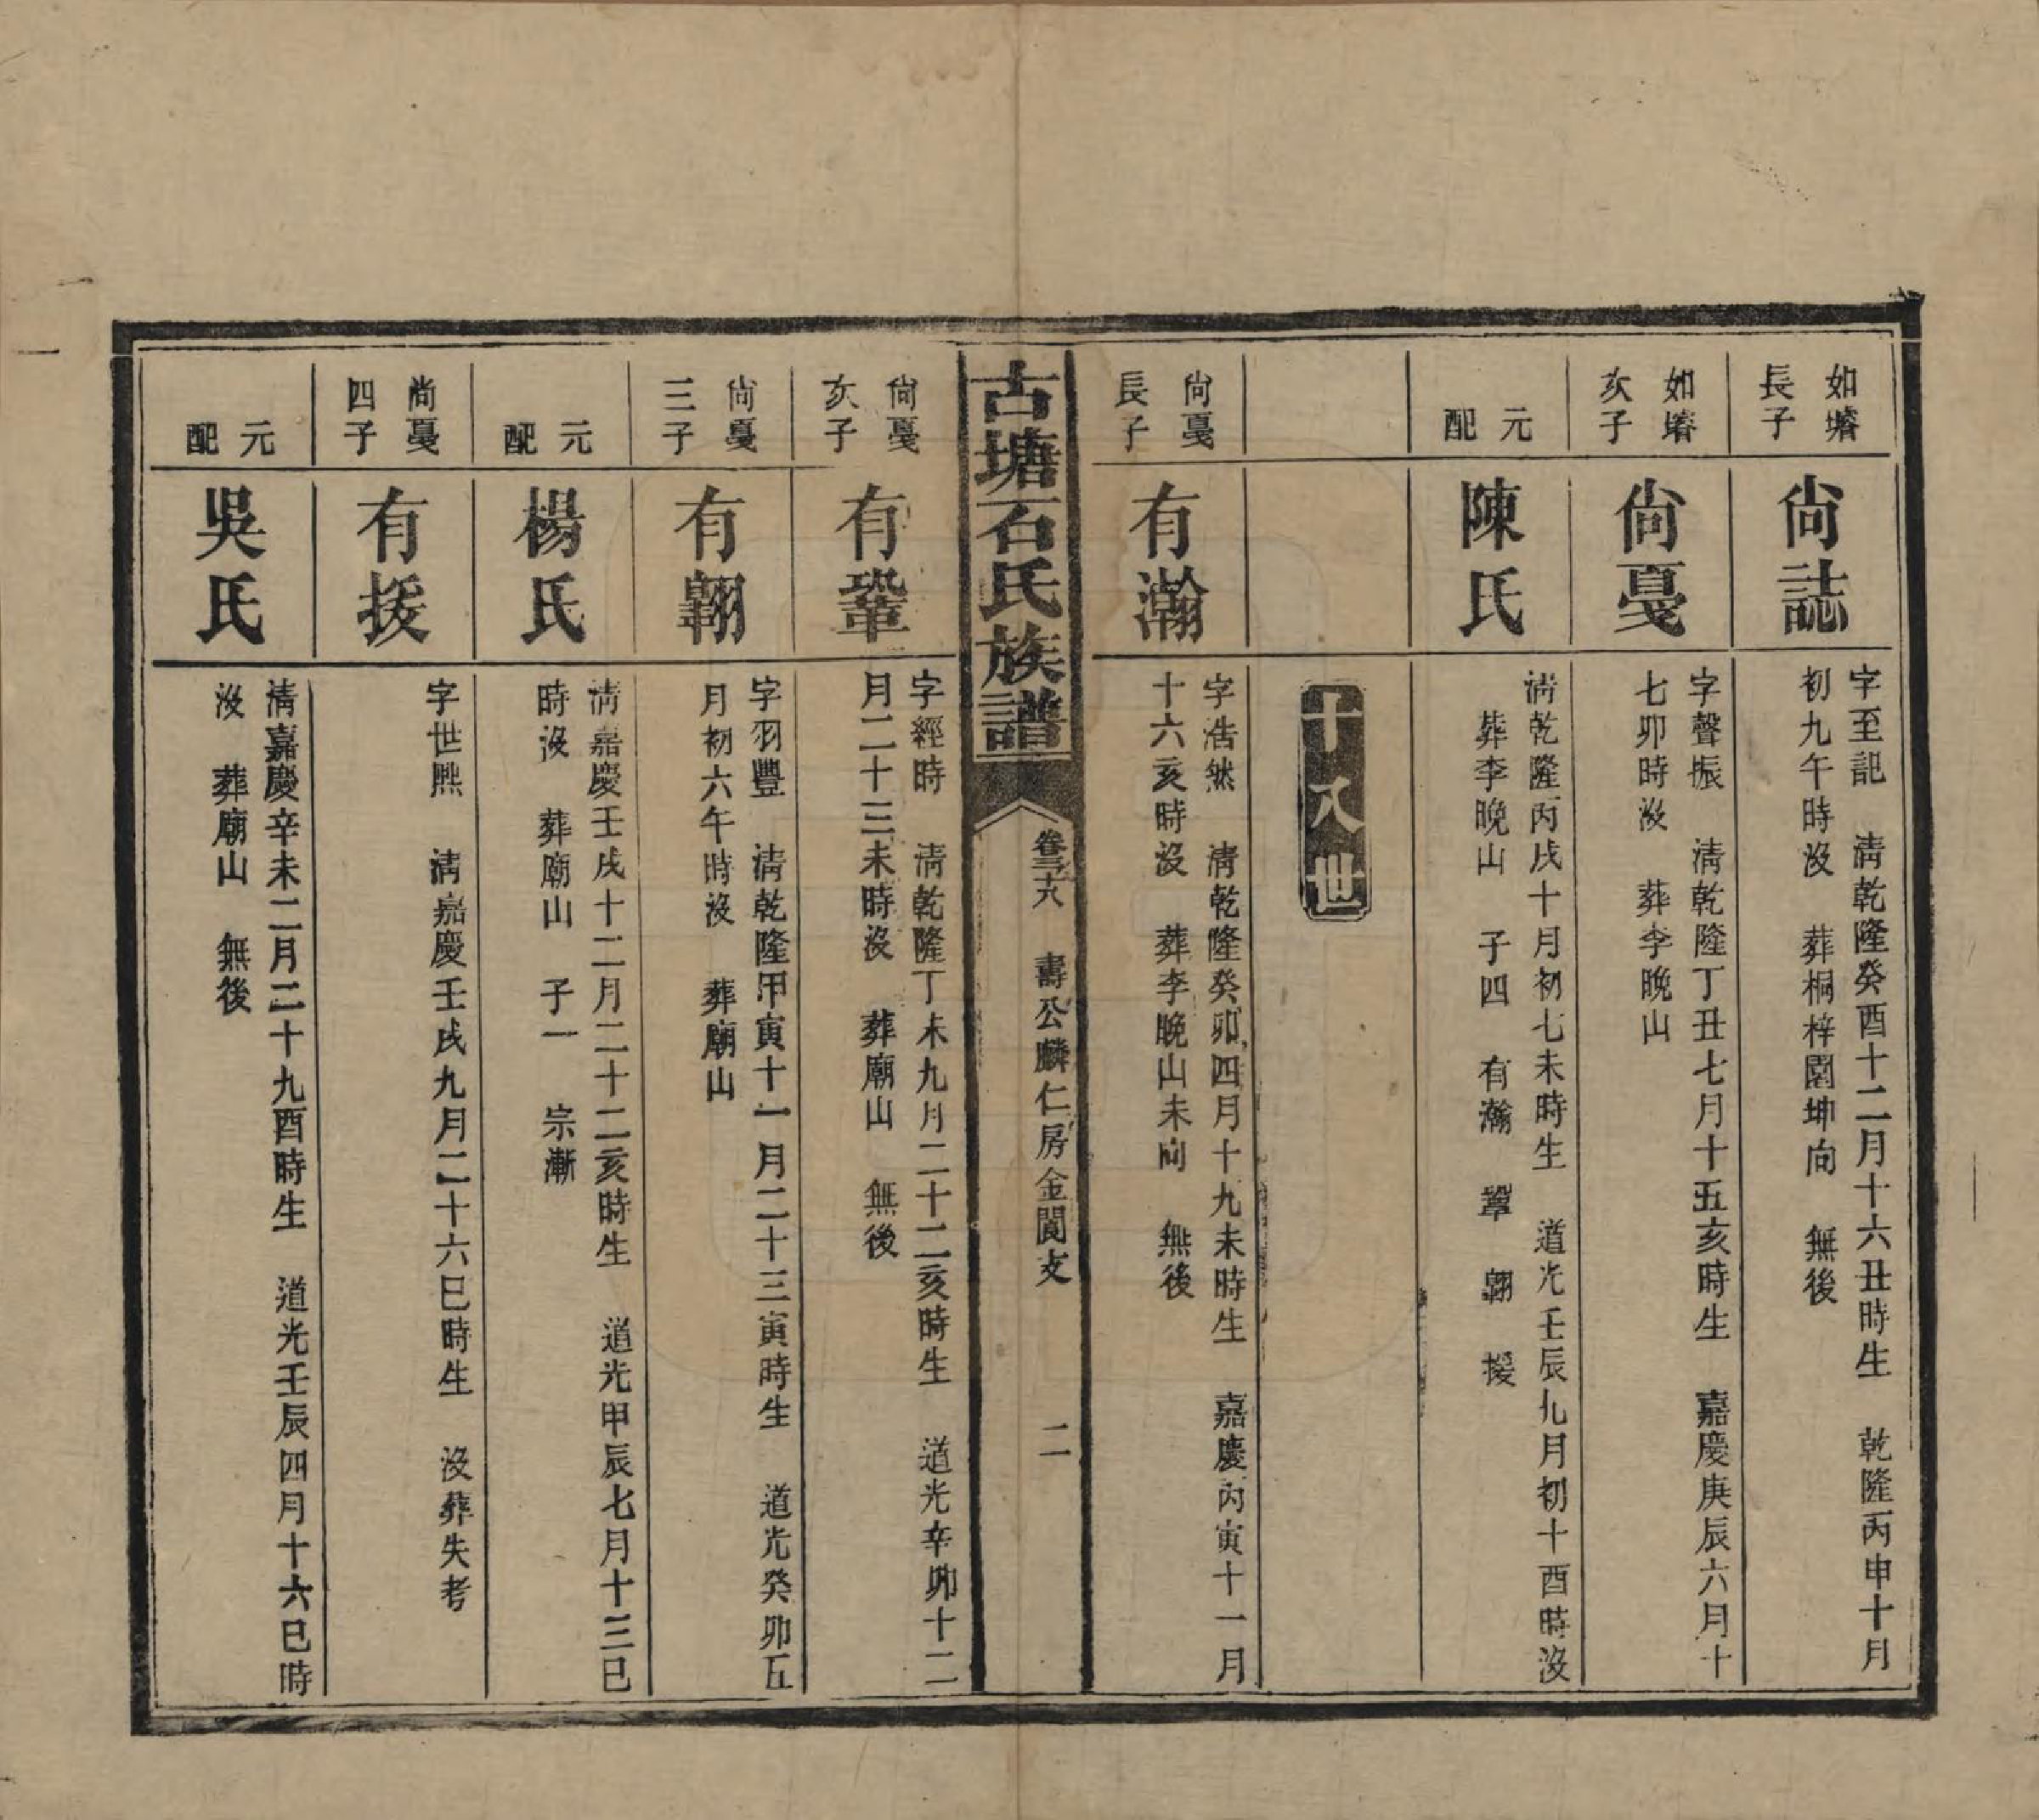 如壔
長子
尙誌
字至記　淸乾隆癸酉十二月十六丑時生　乾隆丙申十月
初九午時沒　葬桐梓園坤向　無後
如壔
次子
尙戞
字聲振　淸乾隆丁丑七月十五亥時生　嘉慶庚辰六月十
七卯時沒　葬李晚山
元配
陳氏
淸乾隆丙戌十月初七未時生　道光壬辰九月初十酉時沒
葬李晚山　子四　有瀚　鞏　翺　援
十八世
尙戞
長子
有瀚
字浩然　淸乾隆癸卯四月十九未時生　嘉慶丙寅十一月
十六亥時沒　葬李晚山未向　無後
古塘石氏族譜
卷三十八　壽公麟仁房金閶支　二
尙戞
次子
有鞏
字經時　淸乾隆丁未九月二十二亥時生　道光辛卯十二
月二十三未時沒　葬廟山　無後
尙戞
三子
有翺
字羽豐　淸乾隆甲寅十一月二十三寅時生　道光癸卯五
月初六午時沒　葬廟山
元配
楊氏
淸嘉慶壬戌十二月二十二亥時生　道光甲辰七月十三巳
時沒　葬廟山　子一　宗漸
尙戞
四子
有援
字世熙　淸嘉慶壬戌九月二十六巳時生　沒葬失考
元配
吳氏
淸嘉慶辛未二月二十九酉時生　道光壬辰四月十六巳時
沒　葬廟山　無後